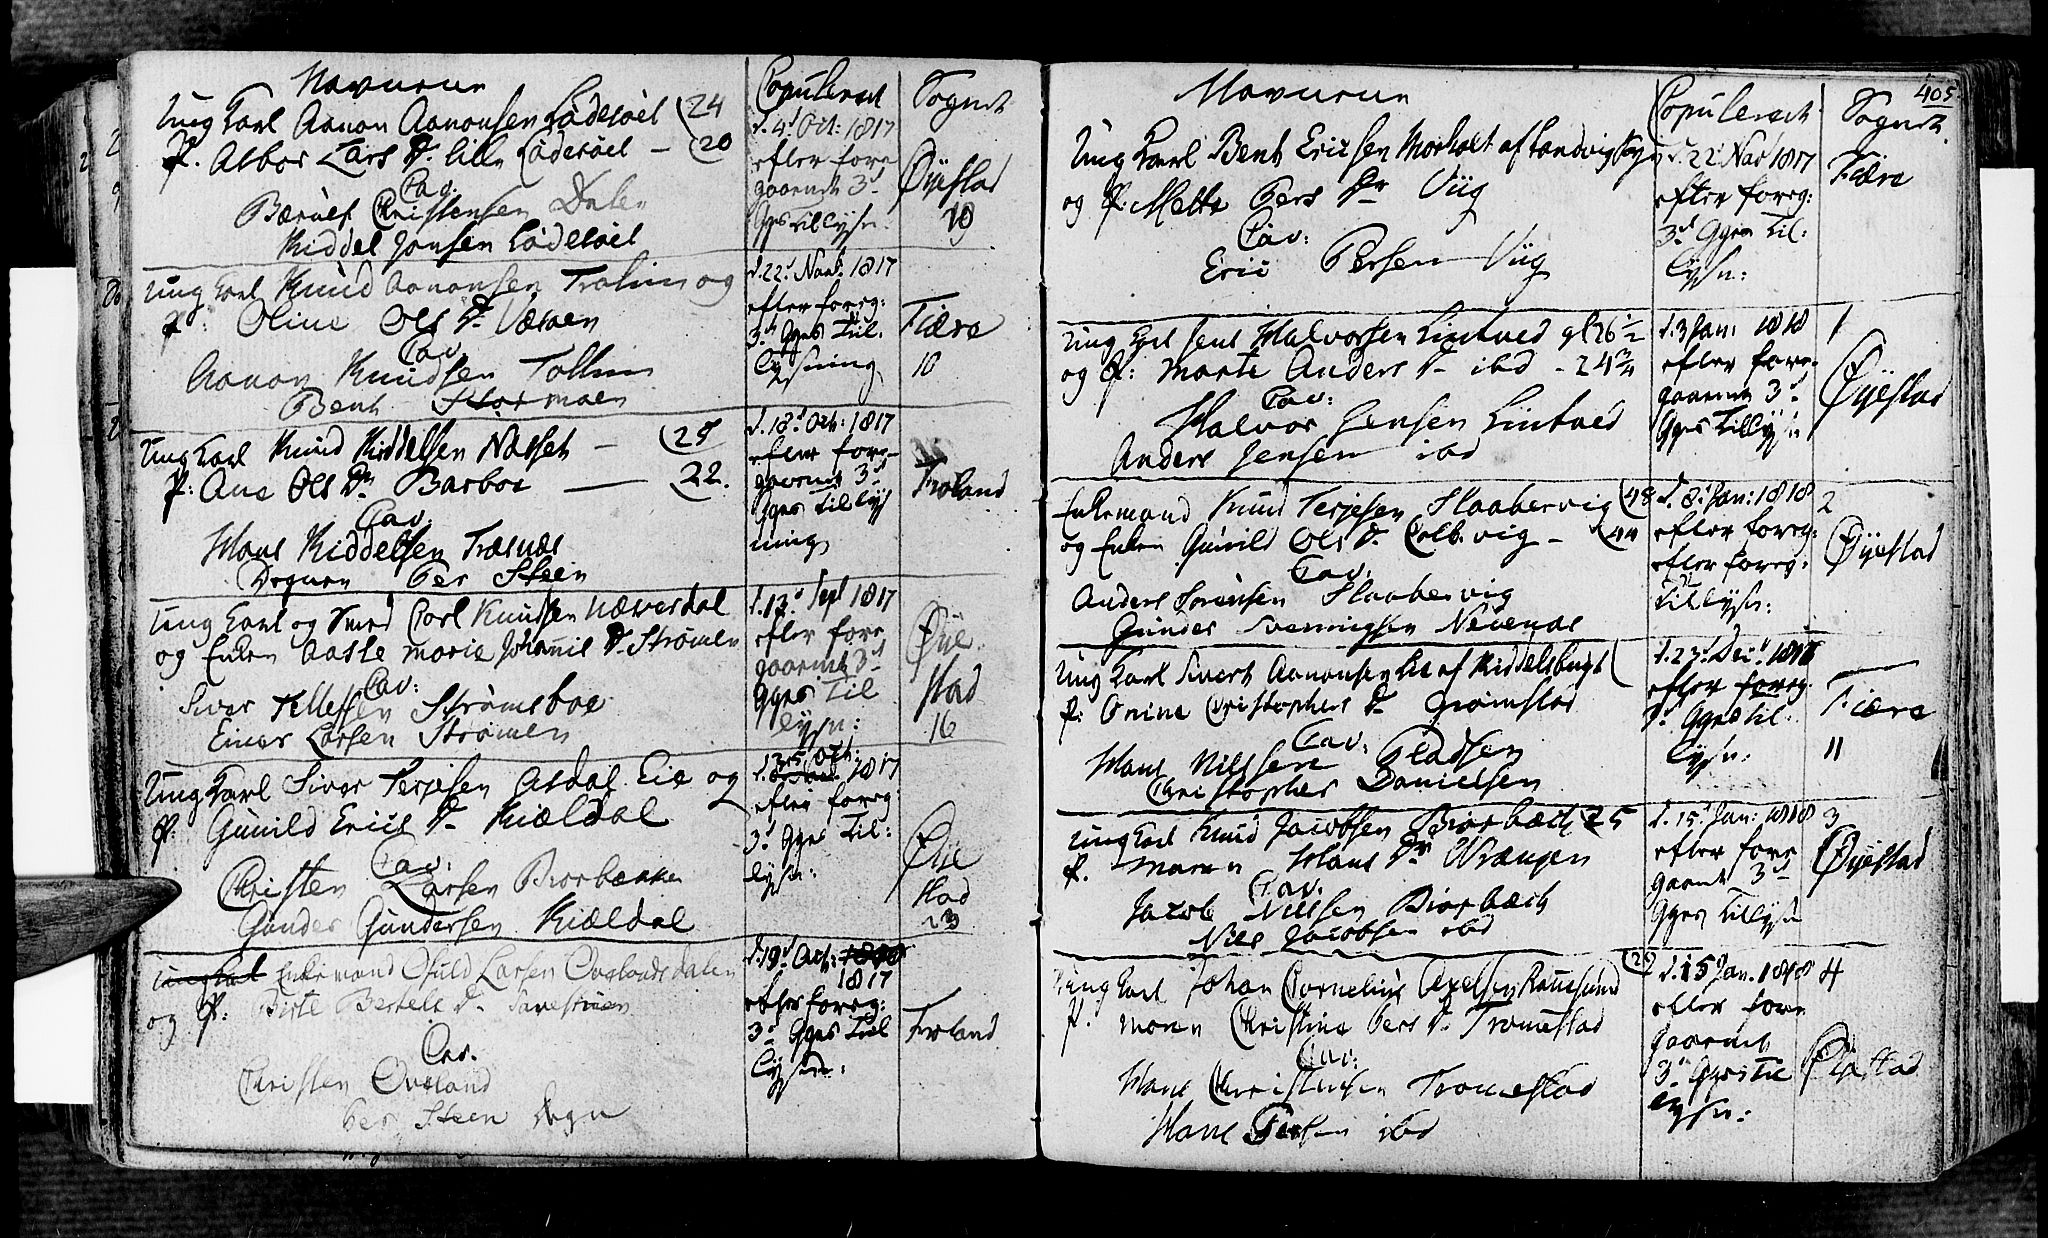 Navnene
Copuleret
Sognet
Ung Karl Aanon Aanonsen Lödesöel (24
P. Asbor Lars D. lille Lödesöel — (20
Cav.
Berület Christensen Dale
Kiddel Jonsen Lödesöel
d. 4d Oct: 1817
efter fore
gaaende 3d
Ges Tillysn.
Øyestad
19
Ung Karl Knud Aanonsen Tralim og
P: Oline Ols D.
Cav.
Aanon Knudsen Tollim
Bent
d. 22d Novb. 1817
efter foreg:
3d Ges Til:
lysning
Fiære
10
Ung Karl Knud Kiddelsen Nasset — (25
P: Ane Ols Dr Barboe — (22.
Cav.
Hans Kiddelsen Træsnæs
Degnen Per Steen
d. 12d Oct: 1817
efter fore
gaaende 3d
Ges Tillys
ning
Froland
Ung Karl og Smed Carl Knudsen Næversdal
og Enken Aasle Marie Johannis D. Strömen
Cav:
Siver Tellefsen Strömsboe
Einer Larsen Strömen
d. 12d Sept 1817
efter fore
gaaende 3d
Ges Til
lysn:
Øie
stad
16
Ung Karl Siver Terjesen Asdal Eie og
P: Gunild Erics D. Kiældal
Cav:
Christen Larsen Biorbække
Gunder Gundersen Kiældal
Oct:
1817
efter foreg
3d Ges Til:
lysn:
Øie
stad
23
Ung Karl Enkemand Larsen
og P: Birte Bertels D.
Cav.
Christen Ovland
Per Steen Degn
d. 19d Oct: 1818
1817
efter foreg:
3d Ges Til
lysn:
Froland
405
Navnene
Copuleret
Sognet
Ung Karl Bent Ericsen Morholt af Landvig Sogn
og P: Mette Pers Dr Viig
Cav:
Eric Persen Viig
d. 22d Nov 1817
efter foreg:
3d Ges Til:
lysn:
Fiære
Ung Karl Jens Halvorsen Lintved gl 26 1/2
og P: Marte Anders D. ibd - 24 3/4
Cav:
Halvor Jensen Lintved
Anders Jensen ibd
d. 3 Jan: 1818
efter fore
gaaende 3d
Ges Tillysn
1
Øyestad
Enkemand Knud Terjesen Staabervig (48
og Enken Gunild Ols D. Colb.vig — (44
Cav:
Anders Sörensen Staabervig
Gunder Svenningsen Nevenæs
d. 8d Jan: 1818
efter foreg:
efter foreg.
Tillysn:
2
Øyestad
Ung Karl Sivert Aanonsen Lie af Kiddelsbugt (
P: Onine Christophers D. Grömstad
Cav:
Hans Nielsen Pladsen
Christopher Danielsen
d. 27d Dec. 1817
efter foreg.
3d Ges til.
lysn:
Fiære
11
Ung Karl Knud Jacobsen Biorbæch 25
P. Maren Hans Dr Wrængen
Cav.
Jacob Nielsen Biorbæch
Niels Jacobsen ibd
d. 15d Jan: 1818
efter fore
gaaend 3d
Ges Tillysn
3
Øyestad
Ung Karl Johan Cornelius Axelsen (29
P. Maren Christine Pers D. Tromestad
Cav:
Hans Christensen Tromestad
Hans Persen ibd
d. 15 Jan. 1818
efter fore
gaaende
3d Ges Til
lysn:
4
Øiestad